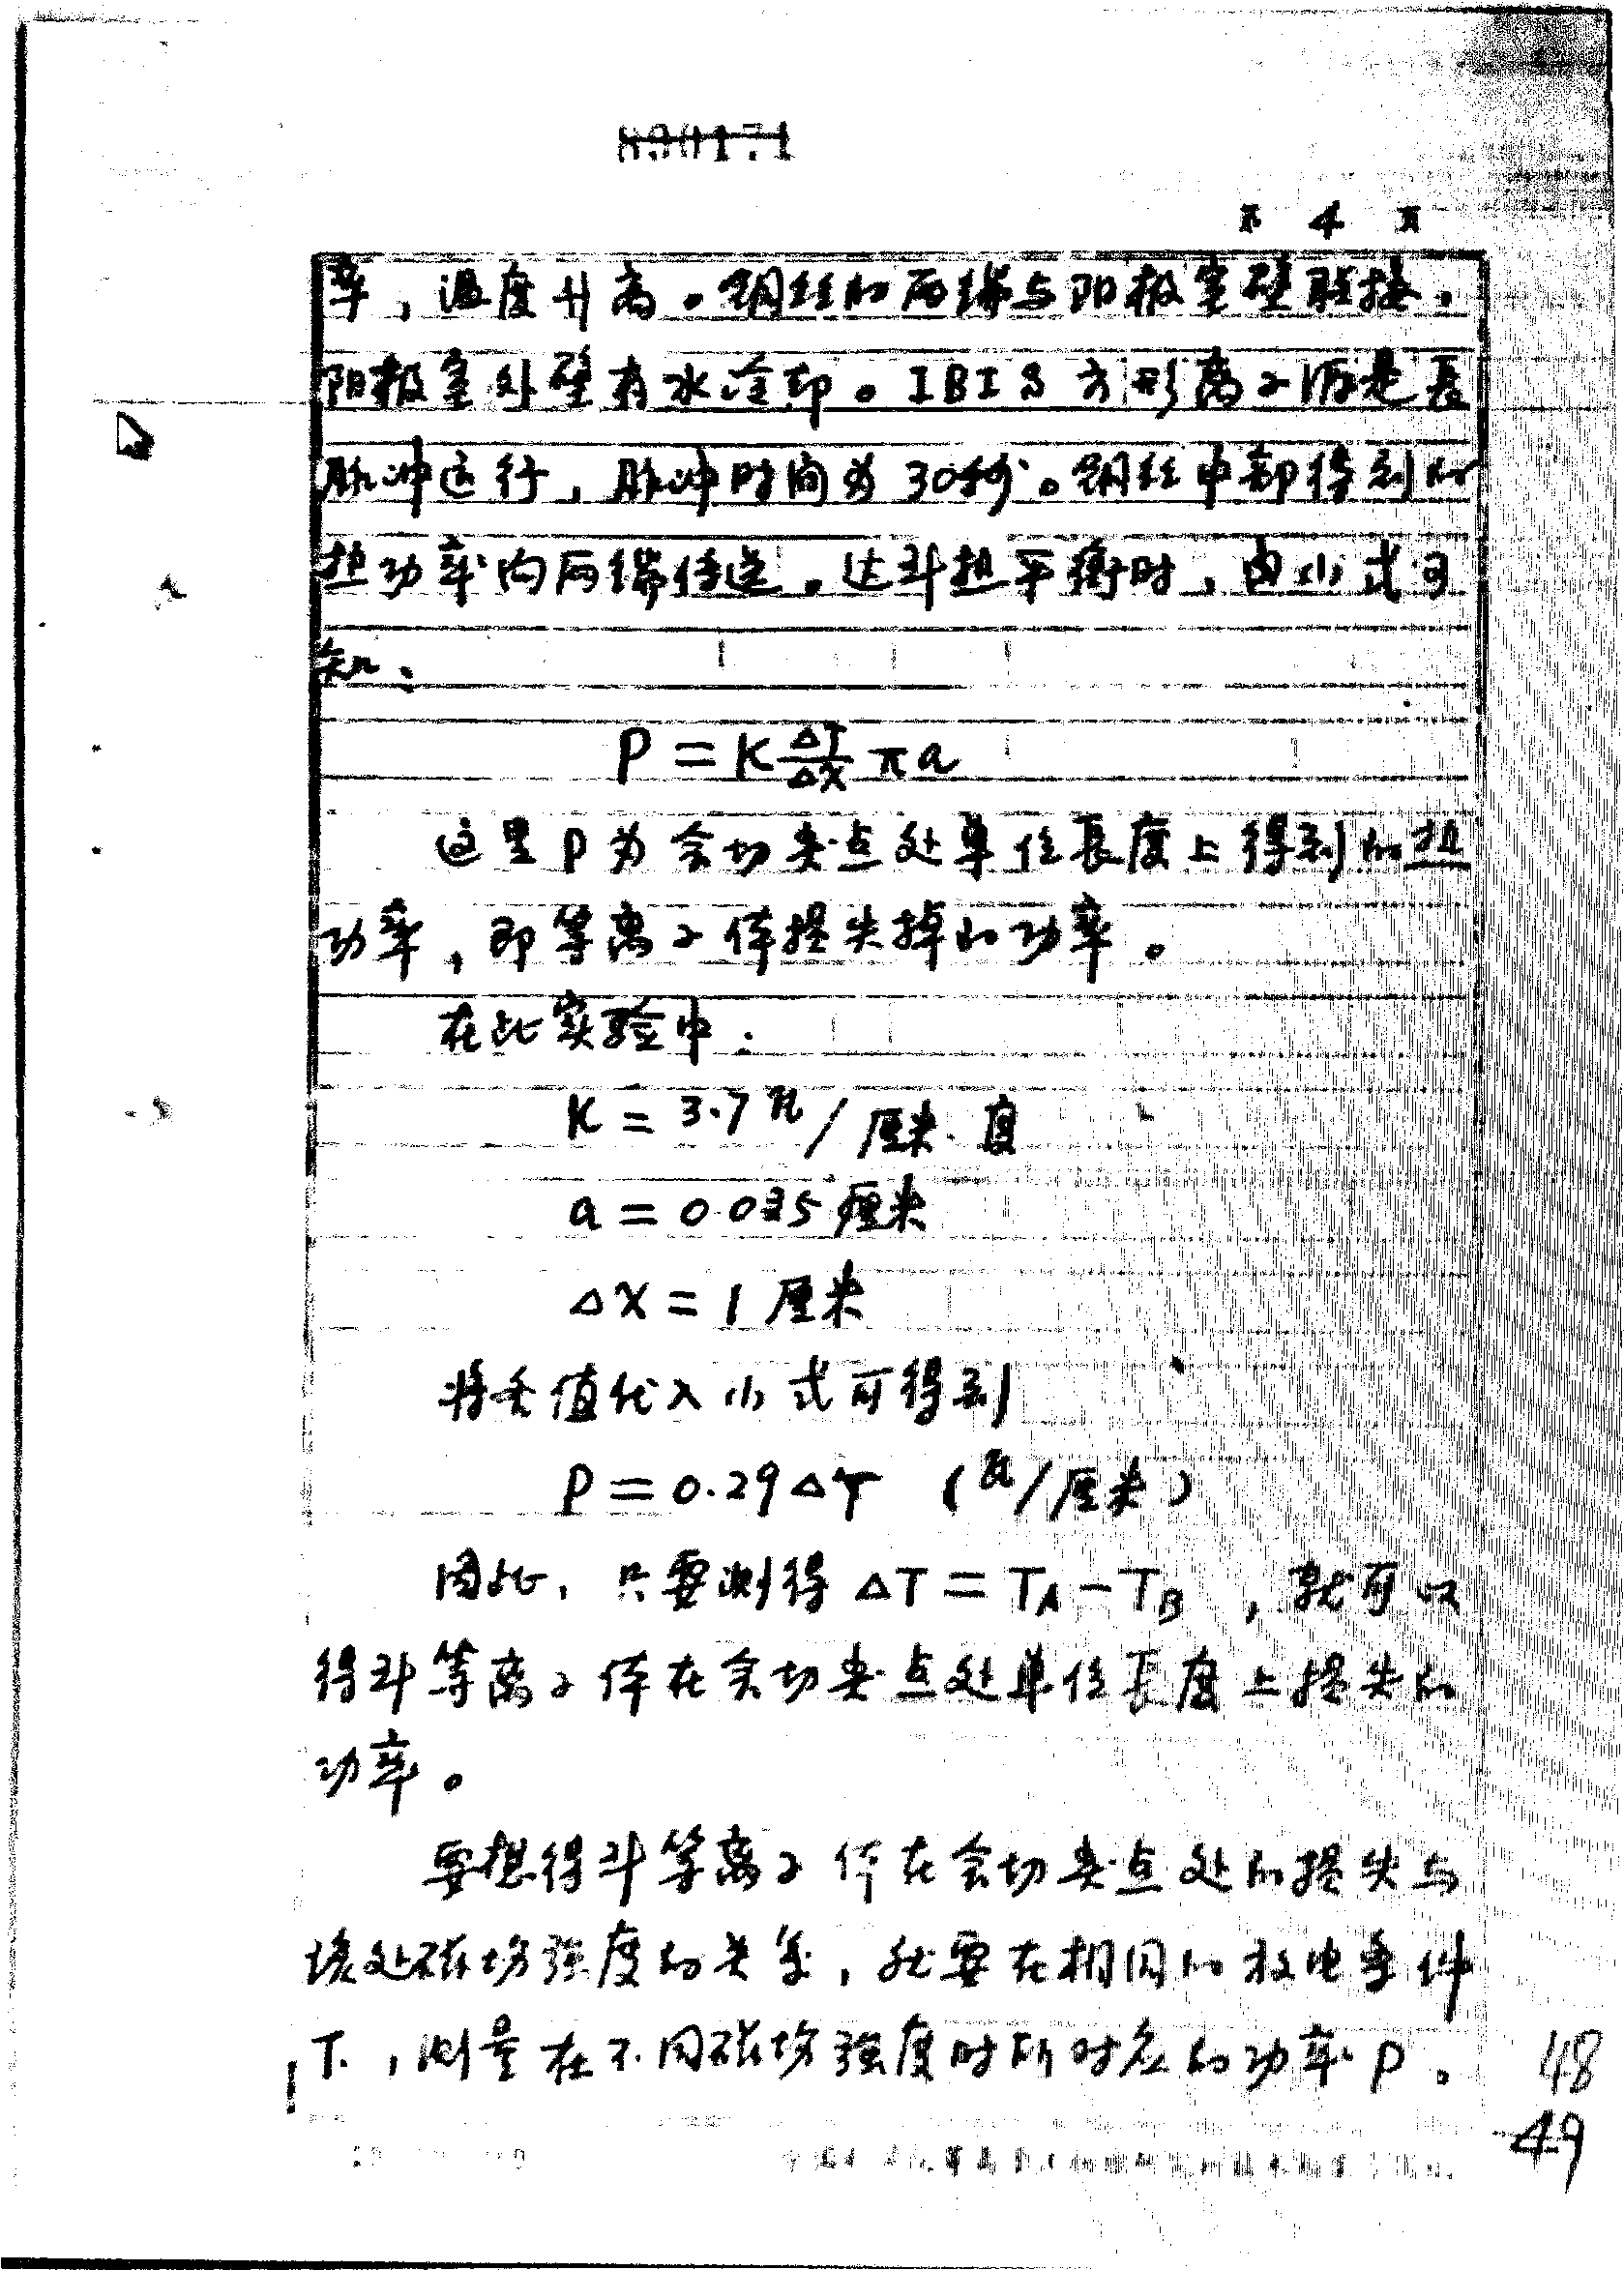 890171
第 4 页
率，温度升高。铜丝的两端与阳极室壁联接。
阳极室外壁有水冷却。IBIS方形离子源是長
脉冲运行，脉冲时间为30秒。铜丝中部得到的
热功率向两端传送。达到热平衡时，由小式可
知：
P = K ΔT/ΔX πa
这里P为会切夹点处单位長度上得到的热
功率，即等离子体损失掉的功率。
在此实验中：
K = 3.7 瓦/厘米·度
a = 0.025 厘米
ΔX = 1 厘米
将各值代入小式可得到
P = 0.29ΔT （瓦/厘米）
因此，只要测得 ΔT = TA − TB ，就可以
得到等离子体在会切夹点处单位長度上损失的
功率。
要想得到等离子体在会切夹点处的损失与
该处磁场强度的关系，就要在相同的放电条件
下，测量在不同磁场强度时所对应的功率P。
48
49